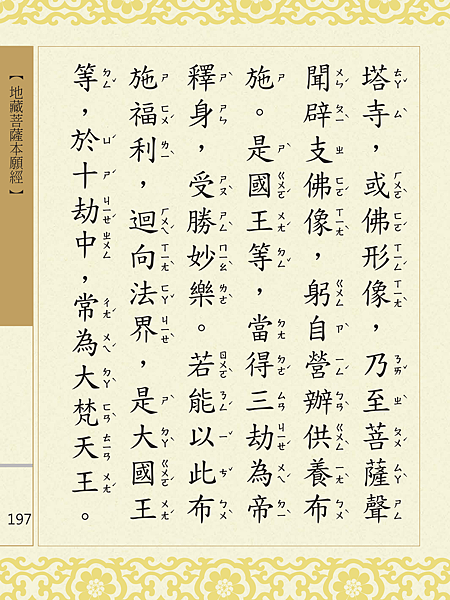 塔寺，或佛形像，乃至菩薩聲
聞辟支佛像，躬自營辦供養布
施。是國王等，當得三劫為帝
釋身，受勝妙樂。若能以此布
施福利，迴向法界，是大國王
等，於十劫中，常為大梵天王。
【地藏菩薩本願經】
197